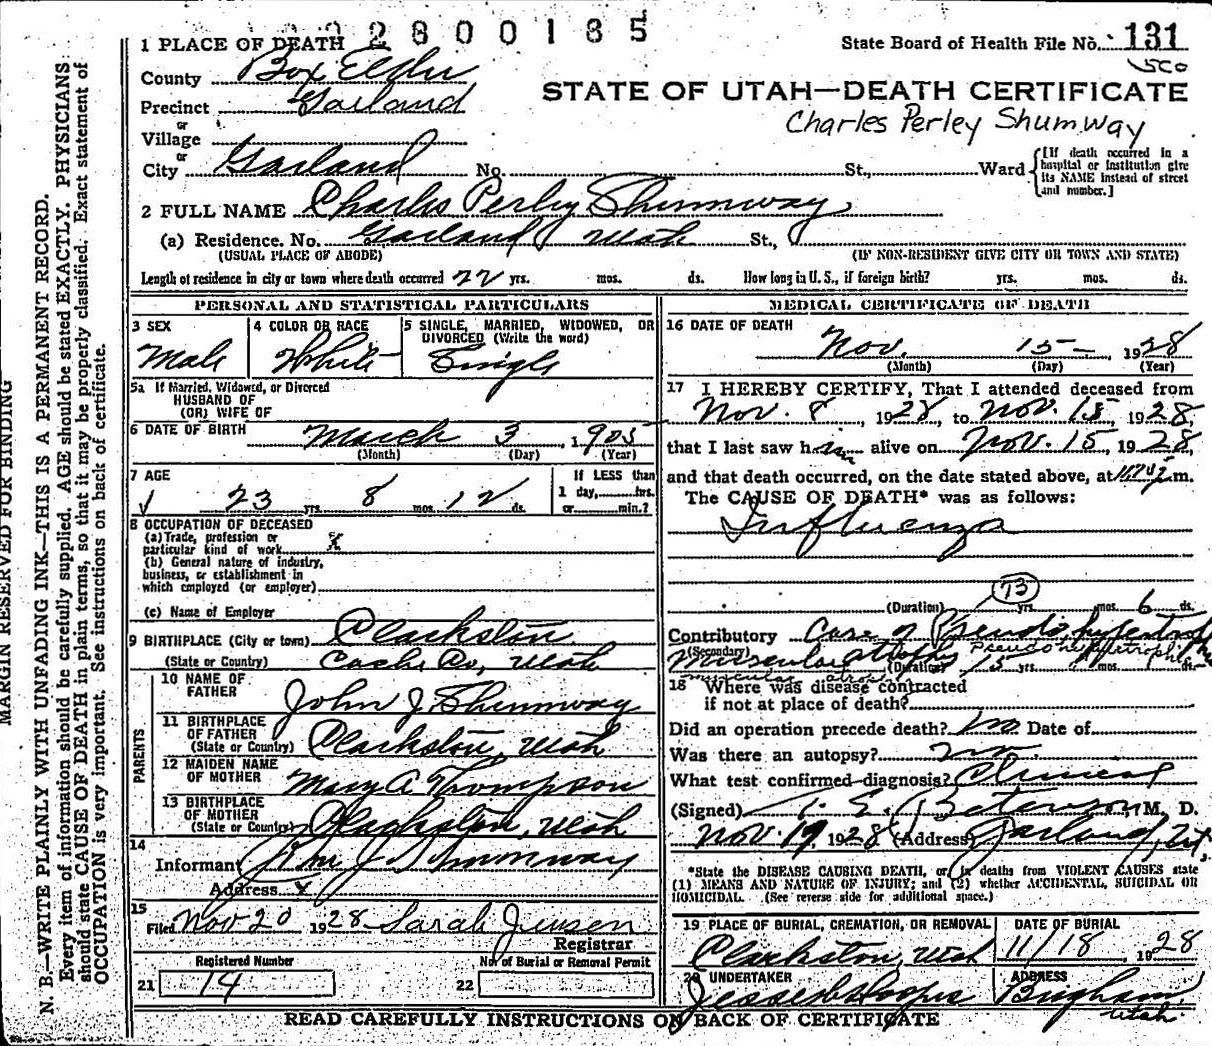 2800185
State Board of Health File No. 131
1 PLACE OF DEATH
County Box Elder
STATE OF UTAH—DEATH CERTIFICATE
Precinct Garland
Charles Perley Shumway
or
Village
or
City Garland No. St., Ward
[If death occurred in a
hospital or institution give
its NAME instead of street
and number.]
2 FULL NAME Charles Perley Shumway
(a) Residence. No. Garland Utah St.,
(USUAL PLACE OF ABODE) (IF NON-RESIDENT GIVE CITY OR TOWN AND STATE)
Length of residence in city or town where death occurred 22 yrs. mos. ds. How long in U. S., if foreign birth? yrs. mos. ds.
PERSONAL AND STATISTICAL PARTICULARS
3 SEX
Male
4 COLOR OR RACE
White
5 SINGLE, MARRIED, WIDOWED, OR
DIVORCED (Write the word)
Single
5a If Married, Widowed, or Divorced
HUSBAND OF
(OR) WIFE OF
6 DATE OF BIRTH March 3 1905
(Month) (Day) (Year)
7 AGE
23 yrs. 8 mos. 12 ds.
If LESS than
1 day,......hrs.
or......min.?
8 OCCUPATION OF DECEASED
(a) Trade, profession or
particular kind of work x
(b) General nature of industry,
business, or establishment in
which employed (or employer)
(c) Name of Employer
9 BIRTHPLACE (City or town) Clarkston
(State or Country) Cache Co, Utah
PARENTS
10 NAME OF
FATHER John J Shumway
11 BIRTHPLACE
OF FATHER
(State or Country) Clarkston, Utah
12 MAIDEN NAME
OF MOTHER Mary A Thompson
13 BIRTHPLACE
OF MOTHER
(State or Country) Clarkston, Utah
14
Informant John J Shumway
Address
15
Filed Nov 20 1928 Sarah Jensen
Registrar
Registered Number No. of Burial or Removal Permit
21 14 22
MEDICAL CERTIFICATE OF DEATH
16 DATE OF DEATH
Nov. 15- 1928
(Month) (Day) (Year)
17 I HEREBY CERTIFY, That I attended deceased from
Nov. 8 1928, to Nov. 15 1928,
that I last saw him alive on Nov. 15, 1928,
and that death occurred, on the date stated above, at m.
The CAUSE OF DEATH* was as follows:
Influenza
73
(Duration) yrs. mos. 6 ds.
Contributory Case of Pseudo hypertrophic
(Secondary) Muscular atrophy Pseudo hypertrophic
(Duration) 15 yrs. mos. ds.
muscular atrophy
18 Where was disease contracted
if not at place of death?
Did an operation precede death? no Date of
Was there an autopsy? no
What test confirmed diagnosis? Clinical
(Signed) M. D.
Nov. 19, 1928 (Address) Garland, Ut,
*State the DISEASE CAUSING DEATH, or in deaths from VIOLENT CAUSES state
(1) MEANS AND NATURE OF INJURY; and (2) whether ACCIDENTAL, SUICIDAL OR
HOMICIDAL. (See reverse side for additional space.)
19 PLACE OF BURIAL, CREMATION, OR REMOVAL
Clarkston, Utah
DATE OF BURIAL
11/18 1928
20 UNDERTAKER
ADDRESS
Brigham
Utah
READ CAREFULLY INSTRUCTIONS ON BACK OF CERTIFICATE
MARGIN RESERVED FOR BINDING
N. B.—WRITE PLAINLY WITH UNFADING INK—THIS IS A PERMANENT RECORD.
Every item of information should be carefully supplied. AGE should be stated EXACTLY. PHYSICIANS
should state CAUSE OF DEATH in plain terms, so that it may be properly classified. Exact statement of
OCCUPATION is very important. See instructions on back of certificate.